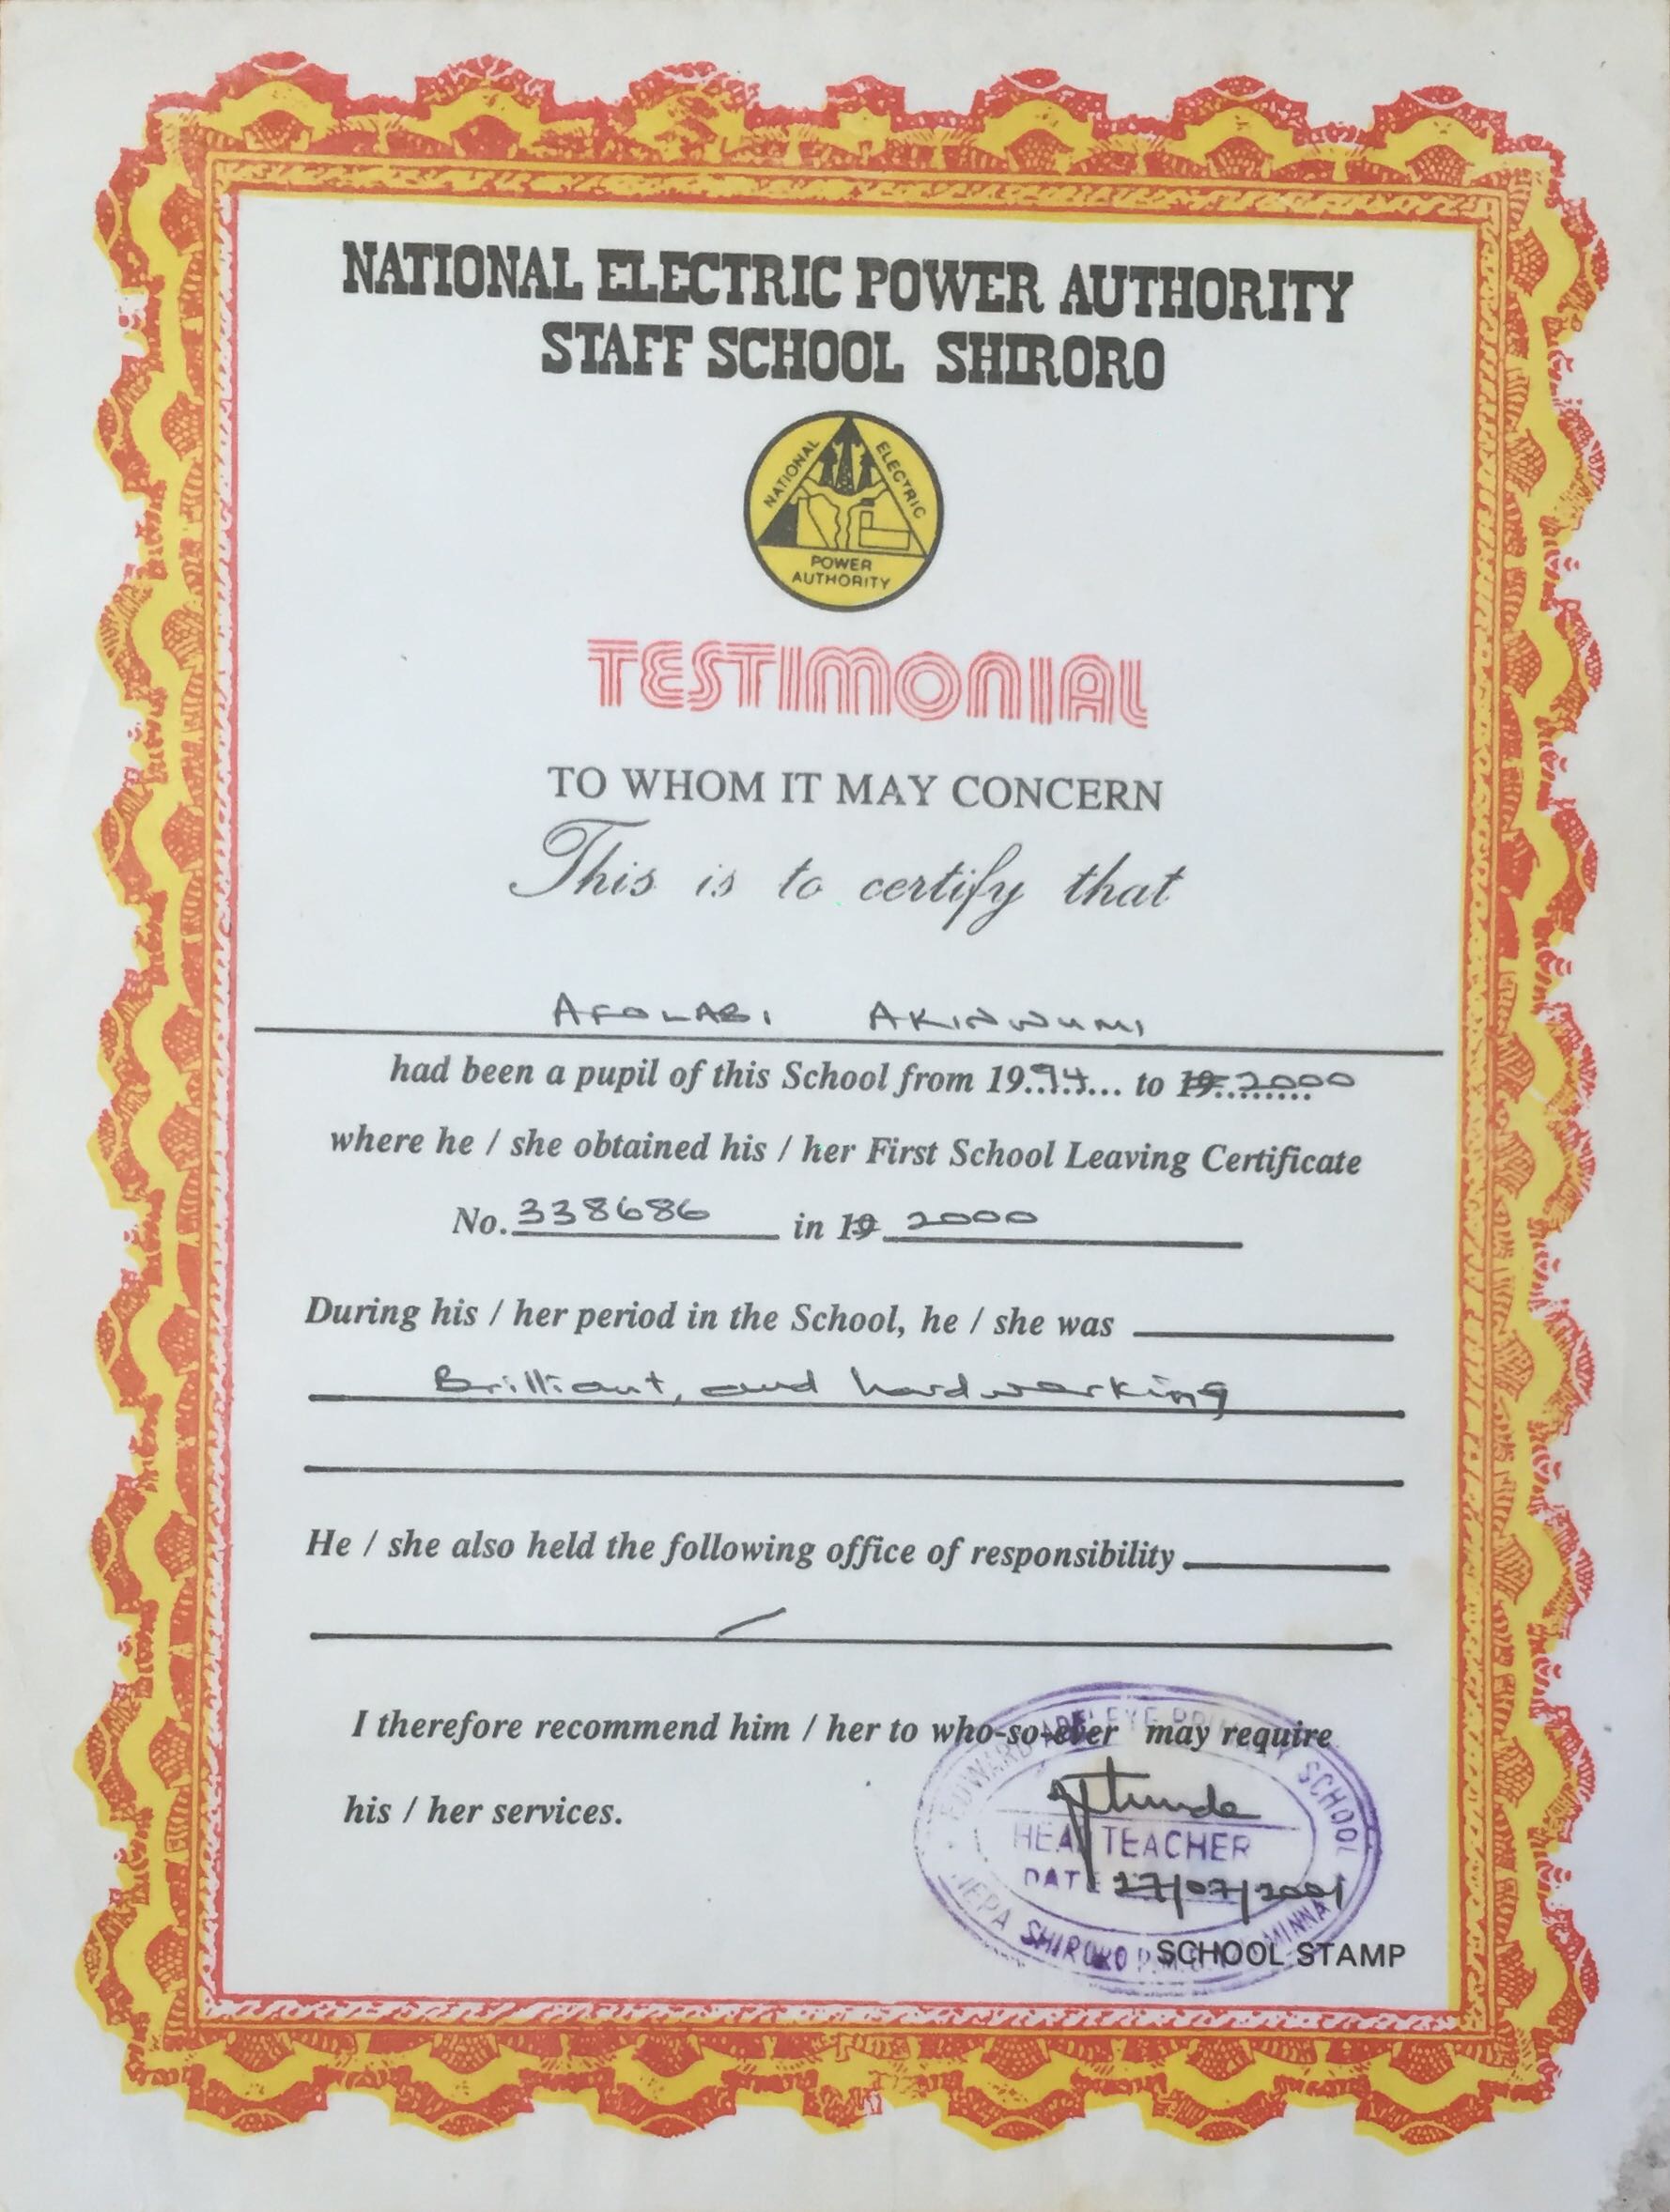 NATIONAL ELECTRIC POWER AUTHORITY
STAFF SCHOOL SHIRORO
NATIONAL ELECTRIC
POWER
AUTHORITY
TESTIMONIAL
TO WHOM IT MAY CONCERN
This is to certify that
AFOLABI AKINWUMI
had been a pupil of this School from 19.94... to 19 2000
where he / she obtained his / her First School Leaving Certificate
No. 338686 in 19 2000
During his / her period in the School, he / she was
Brilliant, and hardworking
He / she also held the following office of responsibility
I therefore recommend him / her to who-so-ever may require
his / her services.
EDWARD ADELEYE PRIMARY SCHOOL
HEAD TEACHER
DATE 27/07/2001
NEPA SHIRORO P.M.B. MINNA
SCHOOL STAMP